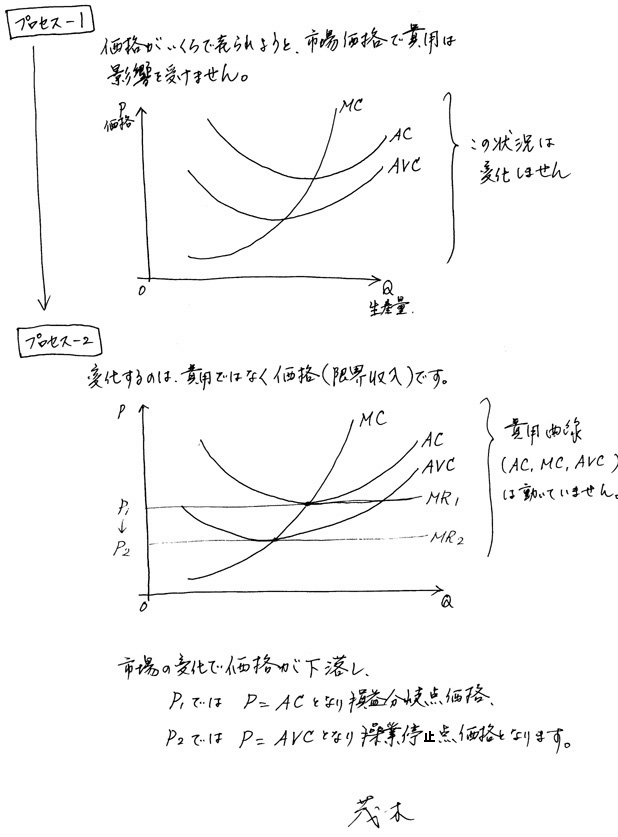 プロセス-1
価格がいくらで売られようと、市場価格で費用は
影響を受けません。
P
価格
MC
AC
AVC
この状況は
変化しません
0
Q
生産量.
プロセス-2
変化するのは、費用ではなく価格(限界収入)です。
P
MC
AC
AVC
P₁
MR₁
↓
P₂
MR₂
費用曲線
(AC, MC, AVC)
は動いていません。
0
Q
市場の変化で価格が下落し、
P₁では P=ACとなり損益分岐点価格、
P₂では P=AVCとなり操業停止点価格となります。
茂木